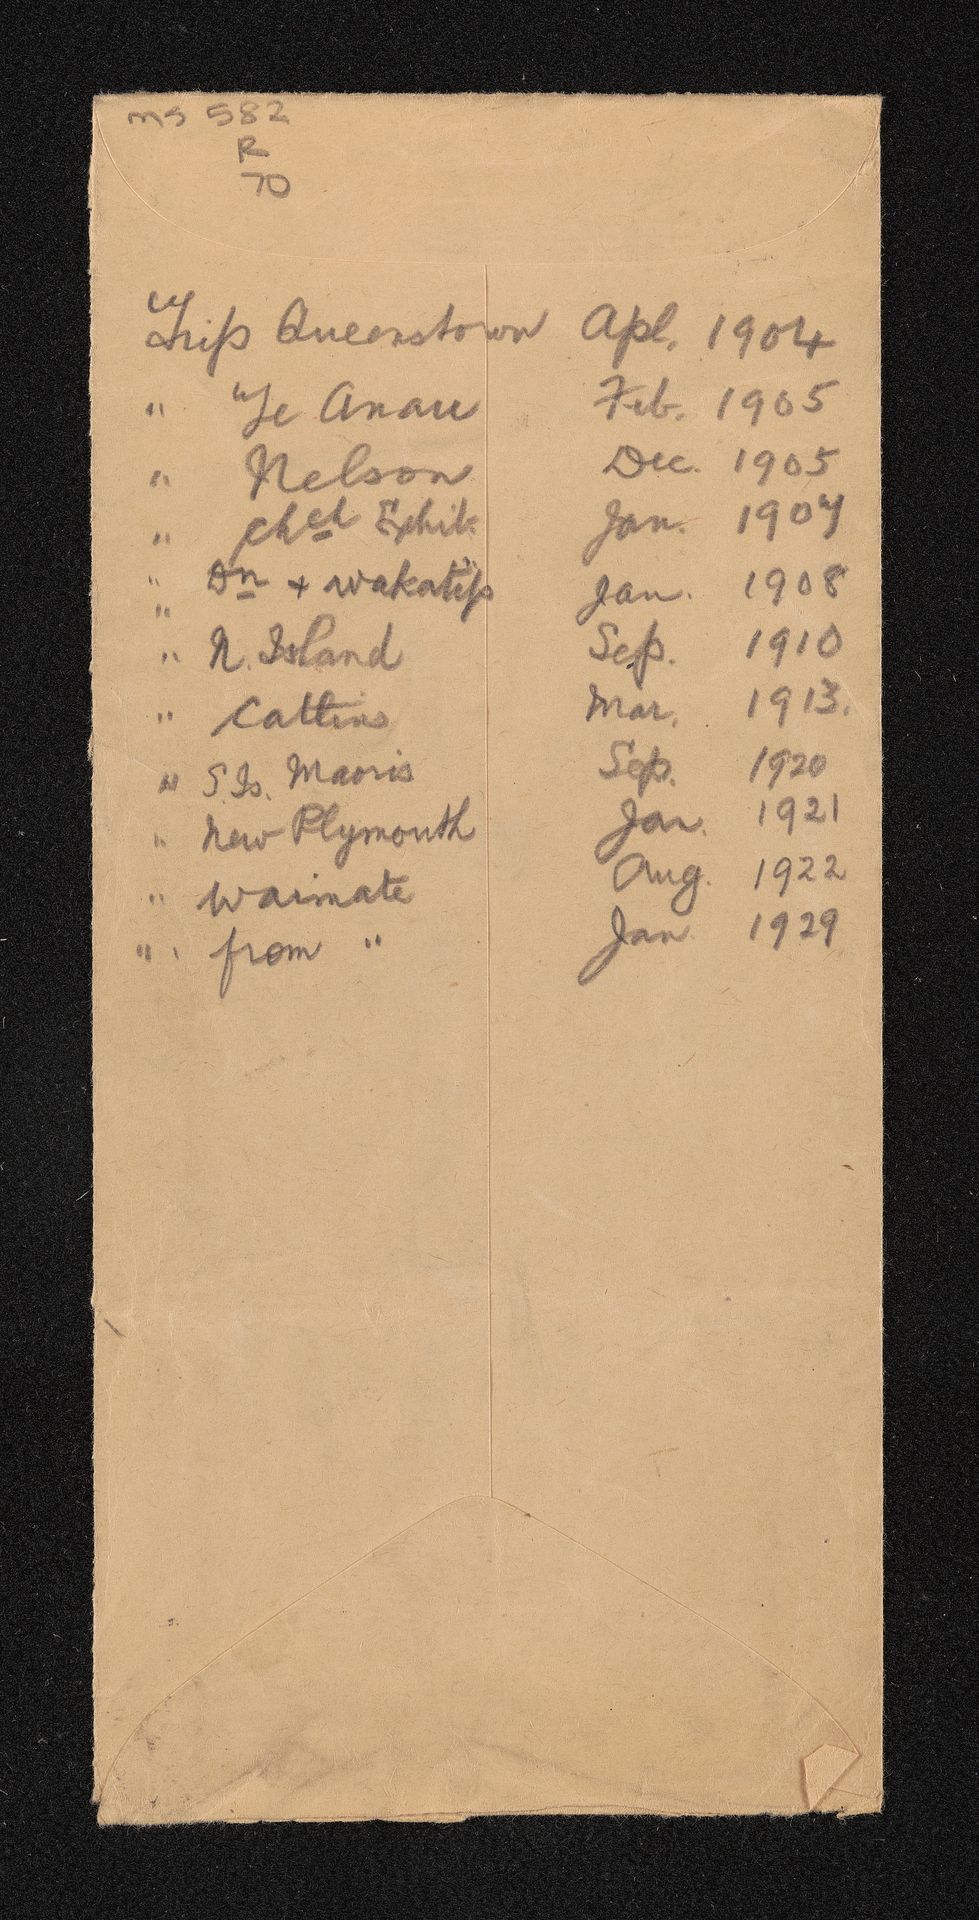 MS 582
R
70
Trip Queenstown Apl. 1904
" Te Anau Feb. 1905
" Nelson Dec. 1905
" Chch Exhib. Jan. 1907
" Dn + Wakatip Jan. 1908
"
" N. Island Sep. 1910
" Catlins Mar. 1913.
" S. Is. Maoris Sep. 1920
" New Plymouth Jan. 1921
" Waimate Aug. 1922
" from " Jan 1929